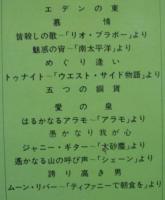 エデンの東
慕情
皆殺しの歌~「リオ・ブラボー」より
魅惑の宵~「南太平洋」より
めぐり逢い
トゥナイト~「ウエスト・サイド物語」より
五つの銅貨
愛の泉
はるかなるアラモ~「アラモ」より
愚かなり我が心
ジャニー・ギター~「大砂塵」より
遥かなる山の呼び声~「シェーン」より
誇り高き男
ムーン・リバー~「ティファニーで朝食を」より